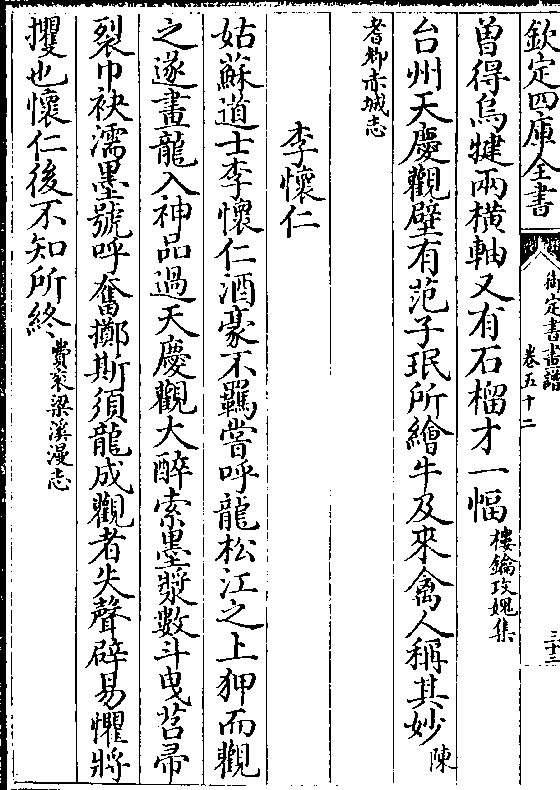 欽定四庫全書
御定書畫譜
卷五十二
三十三
曽得烏犍兩橫軸又有石榴才一幅樓鑰攻媿集
台州天慶觀壁有范子珉所繪牛及來禽人稱其妙陳
耆卿赤城志
李懷仁
姑蘇道士李懷仁酒豪不羈嘗呼龍松江之上狎而觀
之遂畫龍入神品過天慶觀大醉索墨漿數斗曳苕帚
裂巾袂濡墨號呼奮擲斯須龍成觀者失聲辟易懼將
攫也懷仁後不知所終費衮梁溪漫志